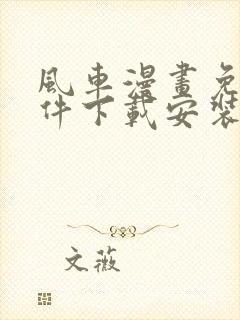 風車漫畫免
件下載安裝
文薇